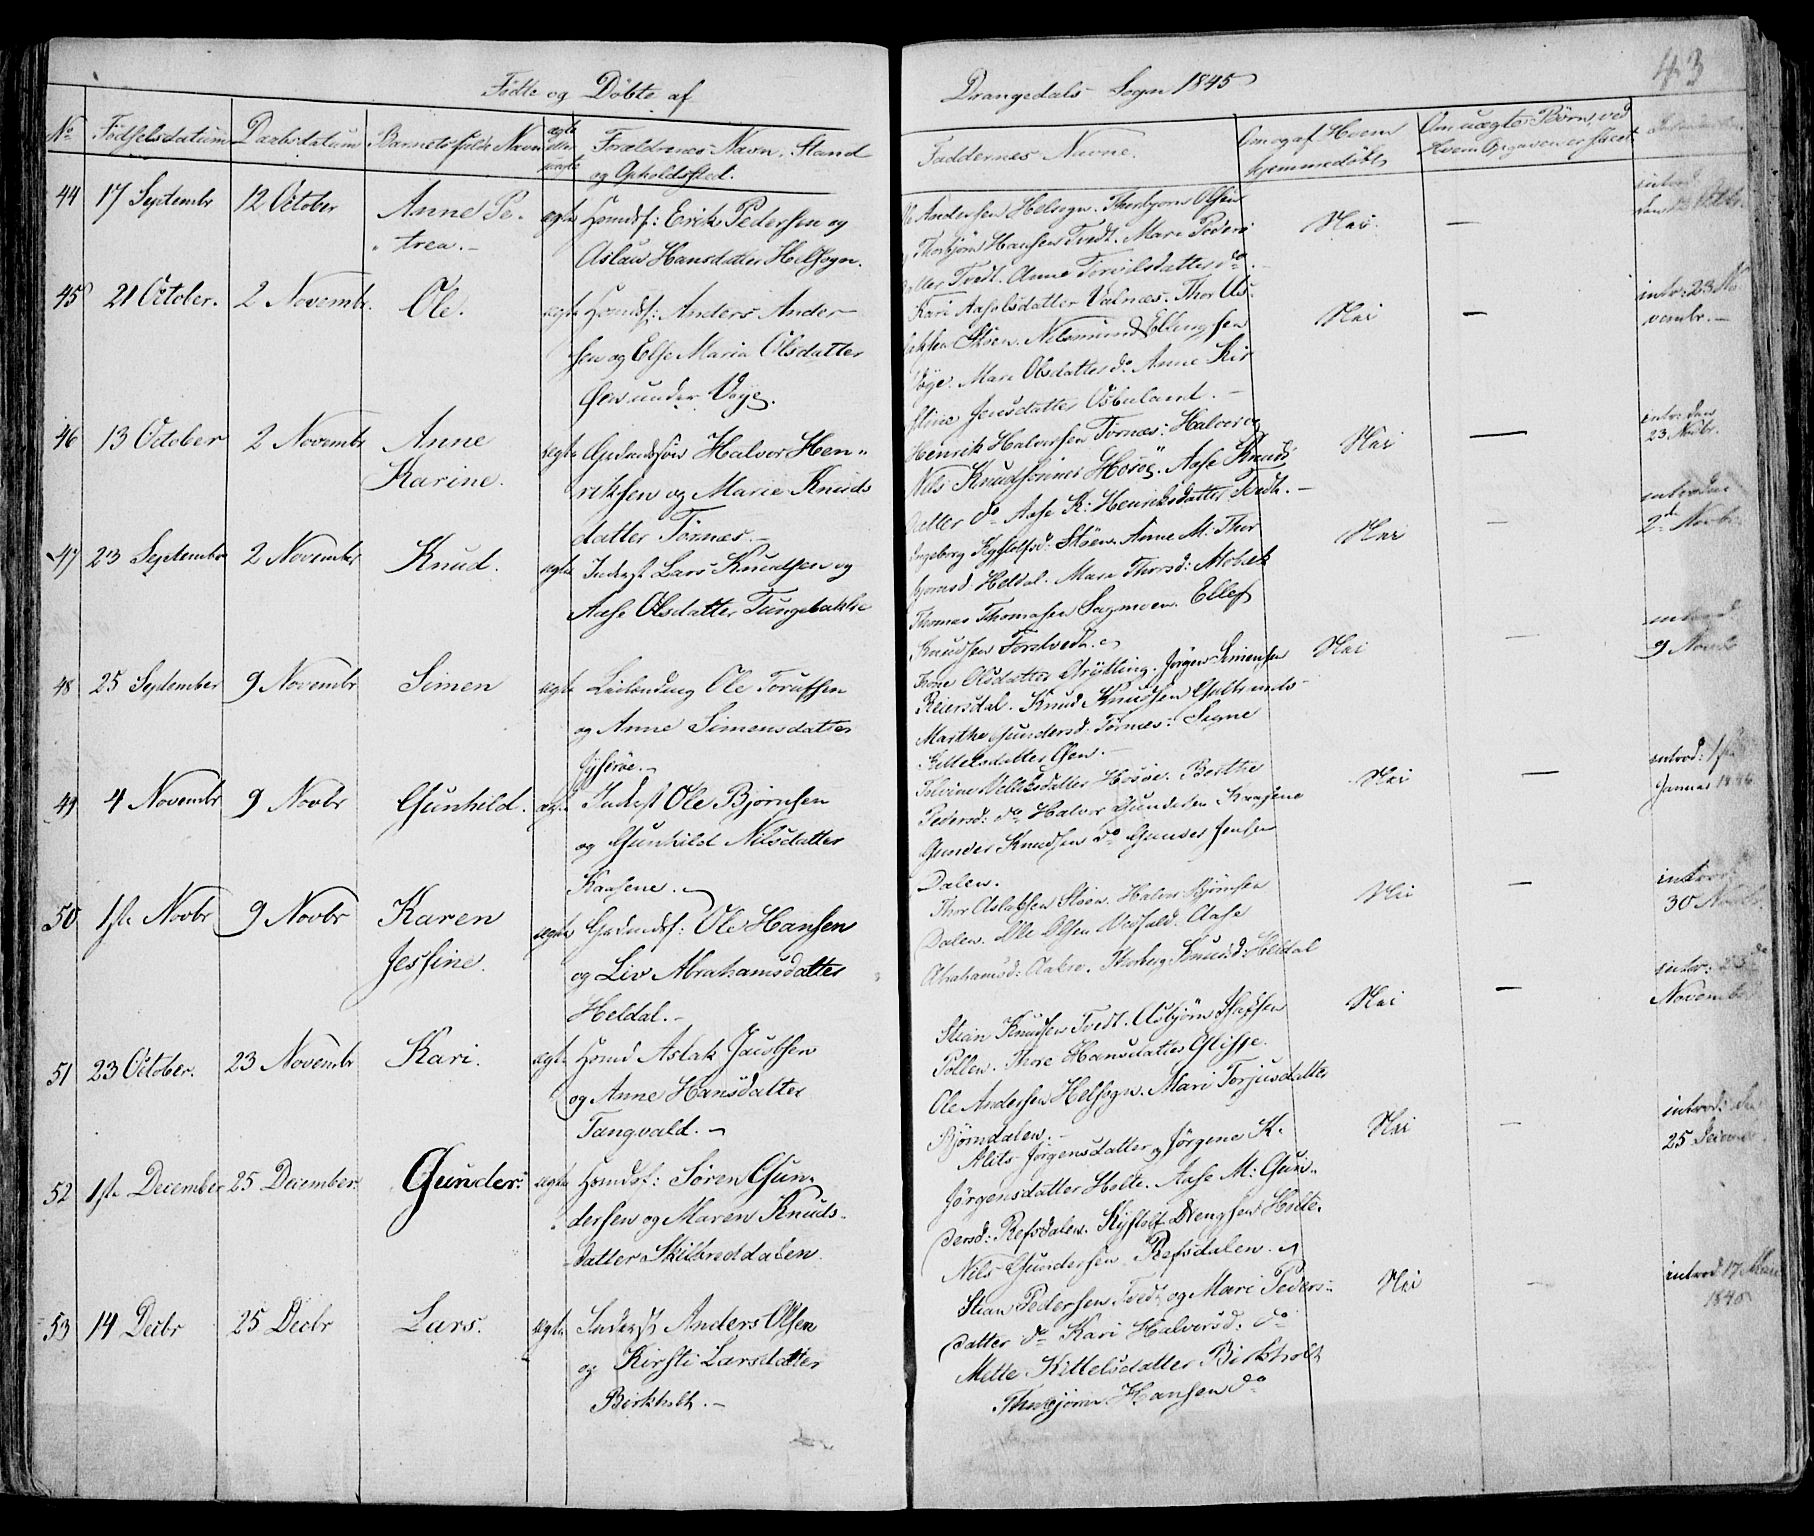 43
Fødte og Døbte af Drangedals Sogn 1845
No Fødselsdatum Daabsdatum Barnets fulde Navn ægte eller uægte Forældrenes Navn, Stand og Opholdssted.
Faddernes Navne. Om og af Hvem hjemmedøbt Om uægte Børn, ved Hvem Opgaven er skeet
44 17 Septembr 12 October Anne Pe-
trea.
ægte Hsmdsf: Erik Pedersen og
Aslaug Hansdatter Helsogn.
Andersen Helsogn. Thorbjørn Olsen
Thorbjørn Hansen Tvedt. Mari Peders
datter Tvedt. Anne Torvilsdatter do
Nei. —
45 21 October. 2 Novembr. Ole.
ægte Hsmdsf: Anders Ander-
sen og Else Maria Olsdatter
Øen under Vøje.
Kari Aasolsdatter Valnæs. Thor As-
laksen Støen. Nilsmund Ellingsen
Vøge. Mari Olsdatter do Anne Kir
stine Jensdatter Osbuland. —
Nei —
intr: 23 No
vembr. —
46 13 October 2 Novembr Anne
Karine.
ægte Gaardmdsøn Halvor Hen-
riksen og Marie Knuds
datter Tørnes. —
Henrik Halvorsen Tørnes: Halvor og
Nils Knudsønner Hosøe. Aase Knuds
datter do Aase K: Henriksdatter Tvedt. —
Nei —
intr: den
23 Novbr.
47 23 Septembr 2 Novembr Knud.
ægte Inderst Lars Knudsen og
Aase Olsdatter Tungebakke
Ingeborg Kystolfsd: Støen. Anne M: Thor
bjørnsd: Heldal. Mari Thorsd: Mobek
Thomas Thomasen Sagmoen. Ellef
Knudsen Forstvedt.
Nei —
introd: den
2d Novbr.
48 25 September 9 Novembr Simen
ægte Leilending Ole Torufsen
og Anne Simensdatter
Jyserøe.
Tone Olsdatter Grytting. Jørgen Simensen
Reiersdal. Knud Knudsen
Marthe Gundersd: Tørnes: Signe
Kittelsdatter Øen. —
Nei —
introd:
9 Novbr
49 4 Novembr 9 Novbr Gunhild.
ægte Inderst Ole Bjørnsen
og Gunhild Nilsdatter
Kaasene.
Hosøe. Berthe
Pedersd: do Halvor Gundersen Kaasene
Gunder Knudsen do Gunder Jensen
Dalen.
Nei —
introd: 1ste
Januar 1846
50 1ste Novbr 9 Novbr Karen
Jessine.
ægte Gaardmdsf: Ole Hansen
og Liv Abrahamsdatter
Heldal. —
Thor Aslaksen Støen. Halvor Bjørnsen
Dalen. Ole Olsen Veisald. Aase
Abrahamsd: Aakre. Thorberg Knudsd: Heldal
Nei —
introd:
30 Novbr.
51 23 October. 23 Novembr Kari.
ægte Hsmd Aslak Jacobsen
og Anne Hansdatter
Tangvald. —
Stian Knudsen Tvedt. Asbjørn Isaksen
Pollen. Thore Hansdatter Gusfse.
Ole Andersen Helsogn. Mari Torjusdatter
Bjørndalen. —
Nei —
intr: 23de
November
52 1ste December 25 December. Gunder.
ægte Hsmdsf: Søren Gun-
dersen og Maren Knuds-
datter Skilbreddalen.
Alits Jørgensdatter og Jørgene K.
Jørgensdatter Holte. Aase M: Gun-
dersd: Refsdalen. Kystolf Drengsen Holte.
Nils Gundersen Refsdalen.
Nei —
introd: den
25 Decembr.
53 14 Decbr 25 Decbr Lars.
ægte Inderst Anders Olsen
og Kirsti Larsdatter
Birkholt. —
Stian Pedersen Tvedt og Mari Peders-
datter do Kari Halversd: do
Mette Kittelsdatter Birkholt
Thorbjørn Hansen do
Nei —
introd: 17 Mai
1846